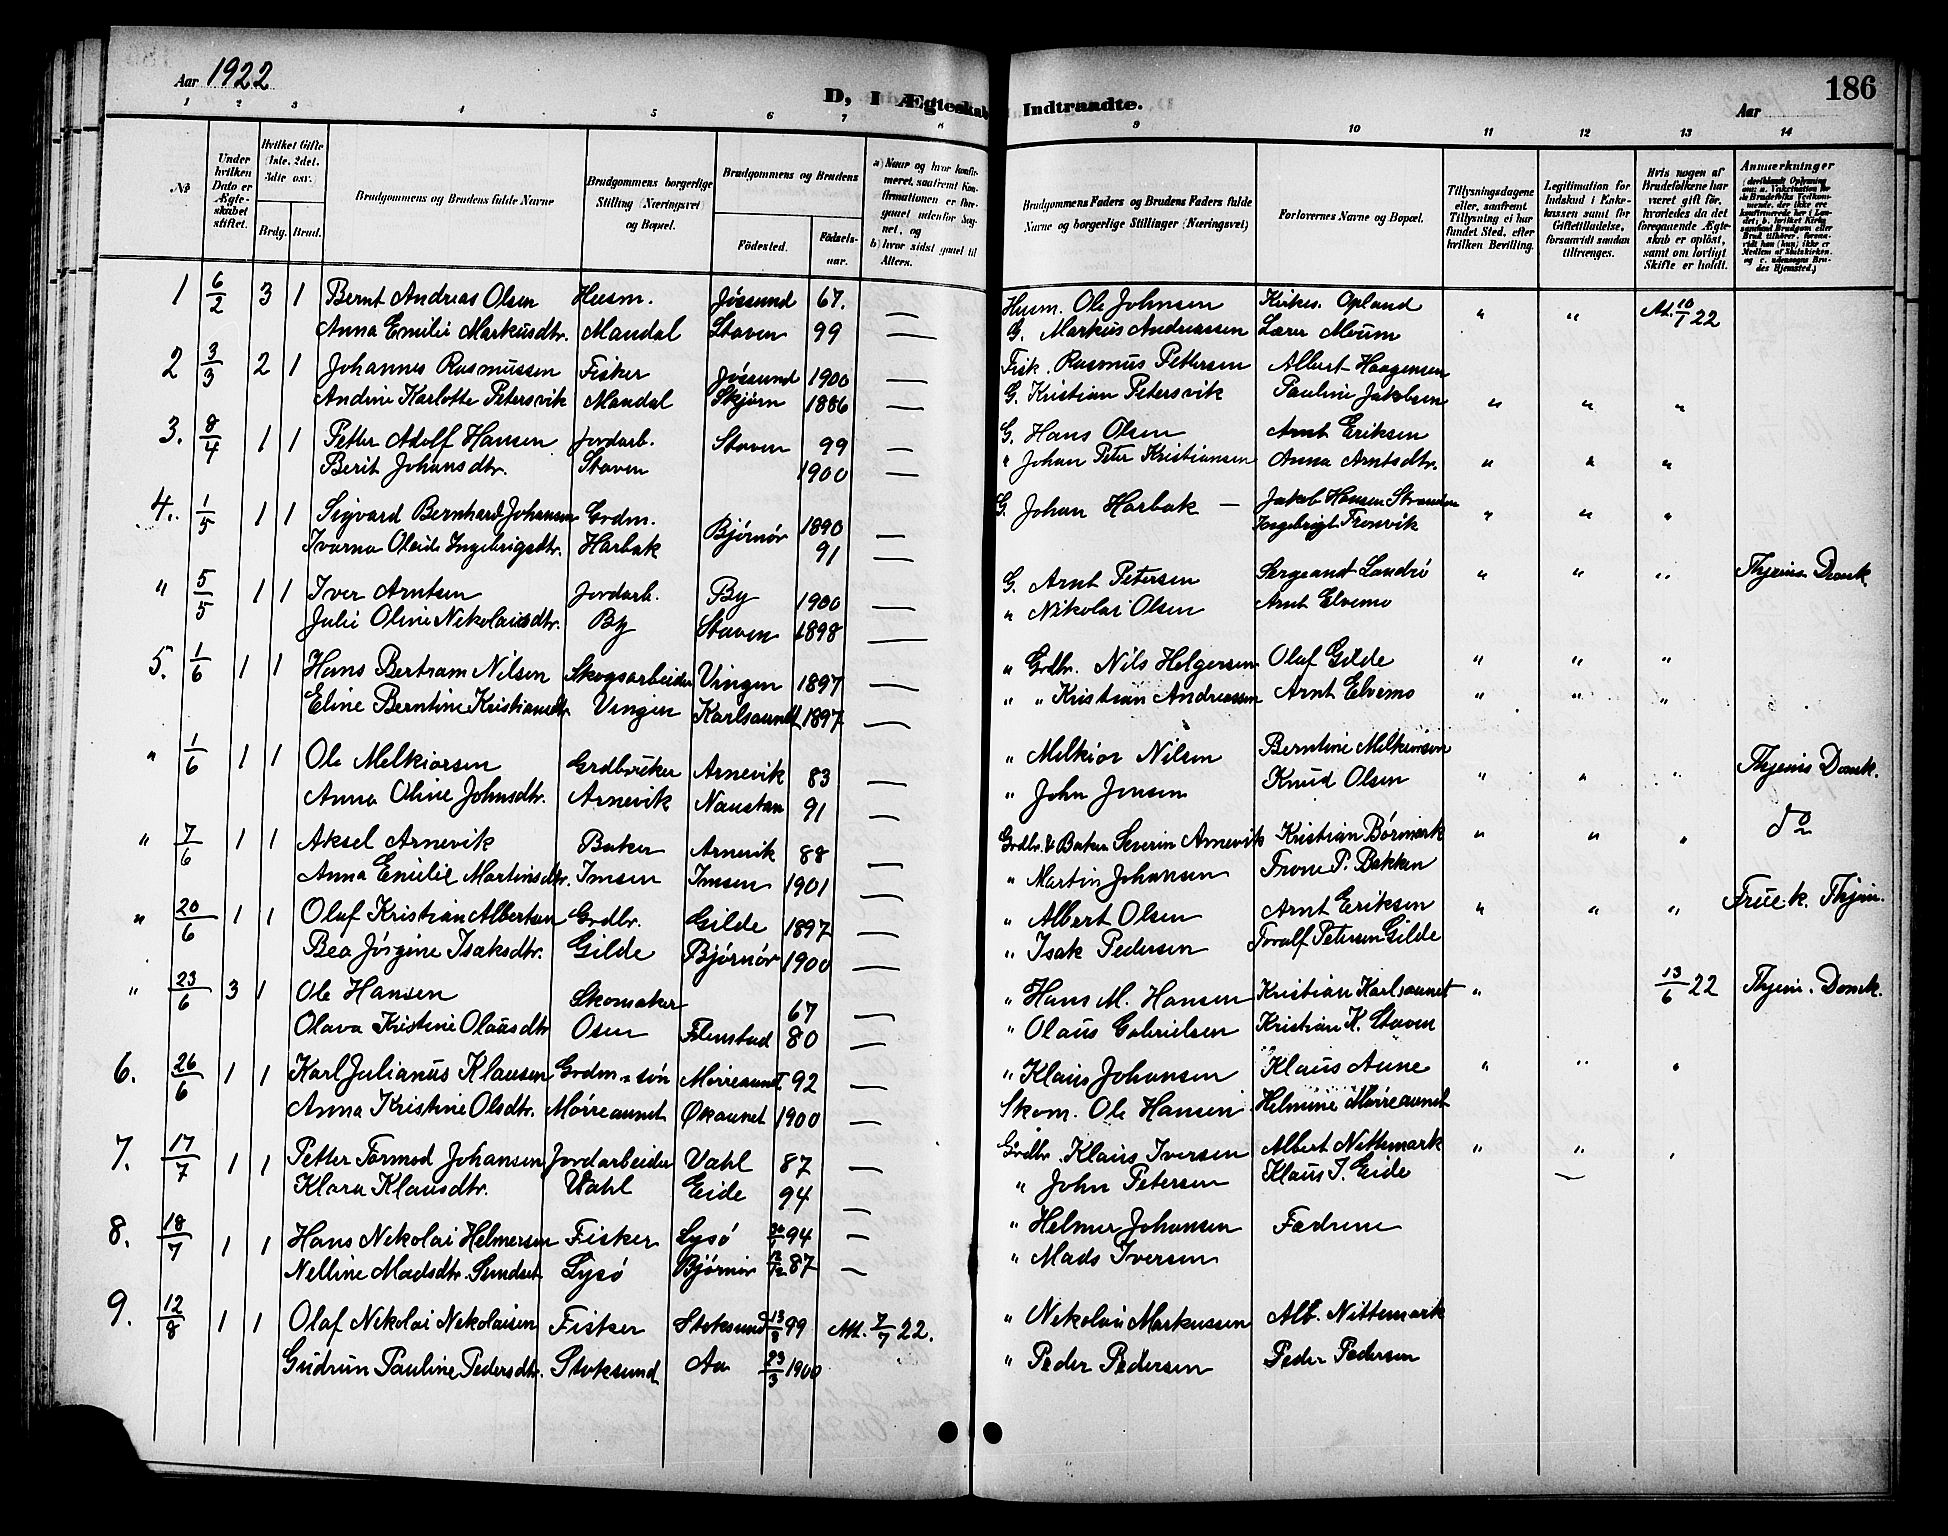 Aar 1922
D, I Ægteskab Indtraadte.
Aar
186
1 2 3 4 5 6 7 8 9 10 11 12 13 14
No
Under hvilken Dato er Ægteskabet stiftet.
Hvilket Gifte (1ste, 2det, 3die osv.)
Brdg. Brud.
Brudgommens og Brudens fulde Navne
Brudgommens borgerlige Stilling (Næringsvei) og Bopæl.
Brudgommens og Brudens
Fødested. Fødselsaar.
a) Naar og hvor konfirmeret, saafremt Konfirmationen er foregaaet udenfor Sognet, og
b) hvor sidst gaaet til Alters.
Brudgommens Faders og Brudens Faders fulde Navne og borgerlige Stillinger (Næringsvei)
Forlovernes Navne og Bopæl.
Tillysningsdagene eller, saafremt Tillysning ei har fundet Sted, efter hvilken Bevilling.
Legitimation for Indskud i Enkekassen samt for Giftetilladelse, forsaavidt saadan tiltrænges.
Hvis nogen af Brudefolkene har været gift før, hvorledes da det foregaaende Ægteskab er opløst, samt om lovligt Skifte er holdt.
Anmærkninger
1 6/2 3 1 Bernt Andreas Olsen Husm. Jøssund 67. — Husm. Ole Johnsen Kirkes. Opland " " At. 10/1 22
Anna Emilie Markusdtr. Mandal Staven 99 — G. Markus Andreassen Lærer Meum
2 3/3 2 1 Johannes Rasmussen Fisker Jøssund 1900 — Fisk. Rasmus Pettersen Albert Haagensen
Andrine Karlotte Petersvik Mandal Skjørn 1886 — G. Kristian Petersvik Pauline Jakobsen " " "
3. 8/4 1 1 Petter Adolf Hansen Jordarb. Staven 99 — G. Hans Olsen Arnt Eriksen
Berit Johansdtr. Staven 1900 — " Johan Peter Kristiansen Anna Arntsdtr. " " "
4. 1/5 1 1 Sigvard Bernhard Johansen Grdm. Bjørnør 1890 — G. Johan Harbak — Jakob Hansen Stranden " " "
Ivarna Oleide Ingebrigtsdtr. Harbak 91 — Ingebrigt Tronvik
" 5/5 1 1 Iver Arntsen Jordarb. By 1900 — G. Arnt Petersen Sergeant Landrø " " " Thjems Domk.
Julie Oline Nikolaisdtr. By Staven 1898 — " Nikolai Olsen Arnt Elvemo
5. 1/6 1 1 Hans Bertram Nilsen Skogsarbeider Vingen 1897 — " Grdbr. Nils Helgersen Olaf Gilde " " "
Eline Berntine Kristiansdtr. Vingen Karlsaunet 1897 — " " Kristian Andreassen Arnt Elvemo " " "
" 1/6 1 1 Ole Melkiorsen Grdbruker Arnevik 83 — " Melkior Nilsen Berntine Melkiorsen
Anna Oline Johnsdtr. Arnevik Naustan 91 — " John Jensen Knud Olsen " " " Thjems Domk.
" 7/6 1 1 Aksel Arnevik Baker Arnevik 88 — Grdbr. & Baker Severin Arnevik Kristian Børmark " " " do
Anna Emilie Martinsdtr. Imsen Imsen 1901 — " Martin Johansen Trone P. Bakken
" 20/6 1 1 Olaf Kristian Albertsen Grdbr. Gilde 1897 — " Albert Olsen Arnt Eriksen " " " Fruek. Thjem.
Bea Jørgine Isaksdtr. Gilde Bjørnør 1900 — " Isak Pedersen Toralf Petersen Gilde
" 23/6 3 1 Ole Hansen Skomaker 67 — " Hans M. Hansen Kristian Karlsaunet " 13/6 22 Thjem. Domk.
Olava Kristine Olausdtr Osen Flenstad 80 — " Olaus Gabrielsen Kristian K. Staven
6. 26/6 1 1 Karl Julianus Klausen Grdm.søn Mørreaunet 92 — " Klaus Johansen Klaus Aune " " "
Anna Kristine Olsdtr. Mørreaunet Økaunet 1900 — Skom. Ole Hansen Helmine Mørreaunet
7. 17/7 1 1 Petter Tormod Johansen Jordarbeider Vahl 87 — Grdbr. Klaus Iversen Albert Nittemark " " "
Klara Klausdtr. Vahl Eide 94 — " John Petersen Klaus J. Eide —
8. 18/7 1 1 Hans Nekolai Helmersen Fisker Lysø 94 — " Helmer Johansen Fædrene
Nelline Madsdtr. Sundset Lysø Bjørnør 12/12 87 — " Mads Iversen
9. 12/8 1 1 Olaf Nikolai Nekolaisen Fisker Stoksund 13/8 99 Att. 7/7 22. " Nekolai Markussen Alb. Nittemark
Gudrun Pauline Pedersdtr. Stoksund Aa 23/3 1900 " Peder Pedersen Peder Pedersen